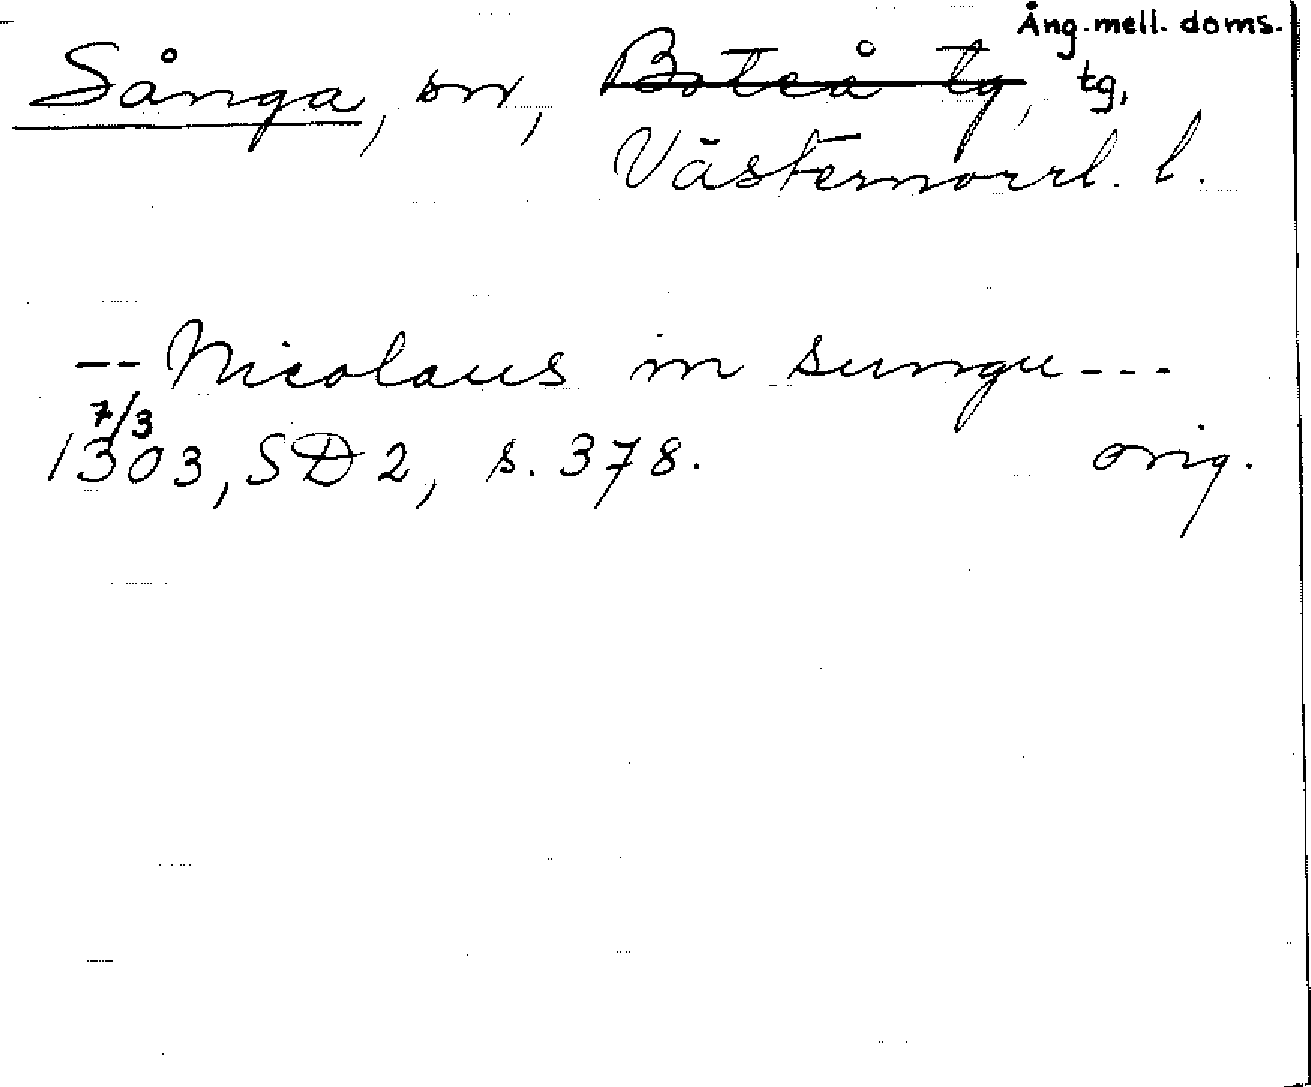 Ång.mell. doms.
Sånga, sn, Boteå tg, tg,
Västernorrl. l.
-- Nicolaus in sungu ---
7/3
1303, SD 2, s. 378. orig.